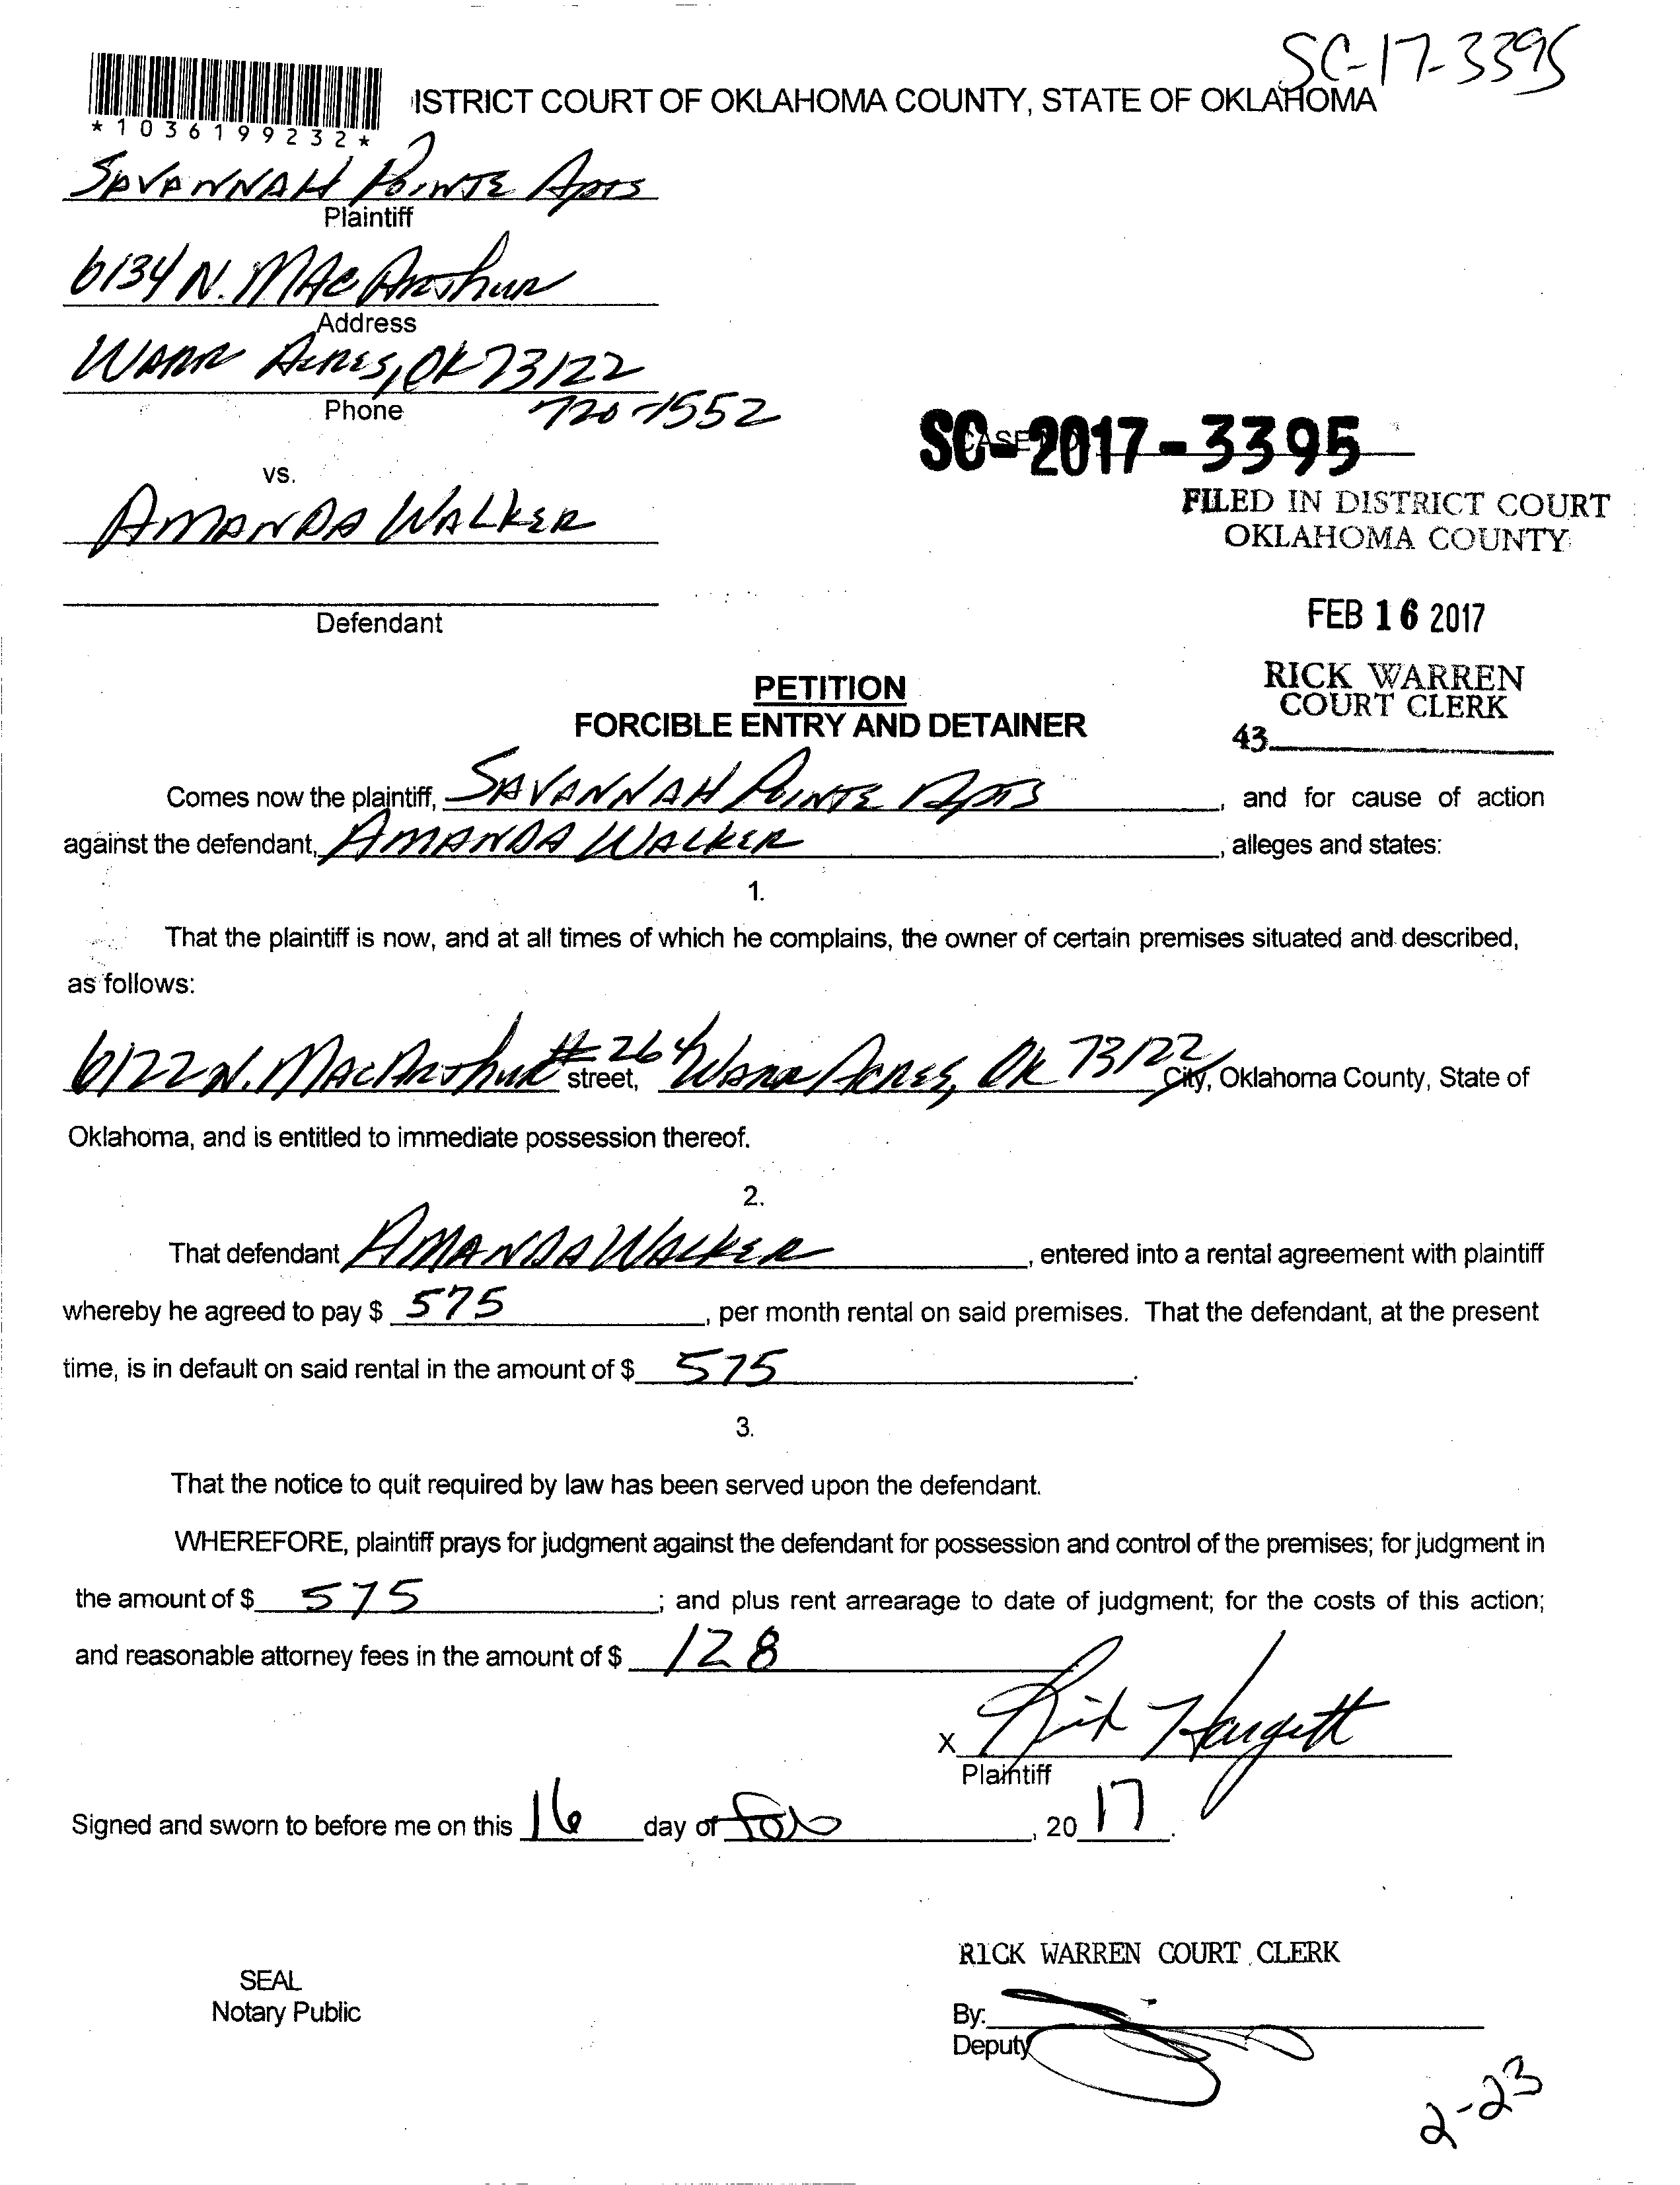 SC-17-3395
ISTRICT COURT OF OKLAHOMA COUNTY, STATE OF OKLAHOMA
*1036199232*
SAVANNAH POINTE APTS
Plaintiff
6134 N. MACARTHUR
Address
WARR ACRES, OK 73122
Phone 720-1552
vs.
SC-2017-3395
FILED IN DISTRICT COURT
OKLAHOMA COUNTY
AMANDA WALKER
Defendant
FEB 16 2017
RICK WARREN
COURT CLERK
43
PETITION
FORCIBLE ENTRY AND DETAINER
Comes now the plaintiff, SAVANNAH POINTE APTS, and for cause of action
against the defendant, AMANDA WALKER, alleges and states:
1.
That the plaintiff is now, and at all times of which he complains, the owner of certain premises situated and described,
as follows:
6122 N. MACARTHUR #264 street, WARR ACRES, OK 73122 City, Oklahoma County, State of
Oklahoma, and is entitled to immediate possession thereof.
2.
That defendant AMANDA WALKER, entered into a rental agreement with plaintiff
whereby he agreed to pay $ 575, per month rental on said premises. That the defendant, at the present
time, is in default on said rental in the amount of $ 575.
3.
That the notice to quit required by law has been served upon the defendant.
WHEREFORE, plaintiff prays for judgment against the defendant for possession and control of the premises; for judgment in
the amount of $ 575; and plus rent arrearage to date of judgment; for the costs of this action;
and reasonable attorney fees in the amount of $ 128
X Rick Hargett
Plaintiff
Signed and sworn to before me on this 16 day of Feb, 2017.
RICK WARREN COURT CLERK
SEAL
Notary Public
By:
Deputy
2-23